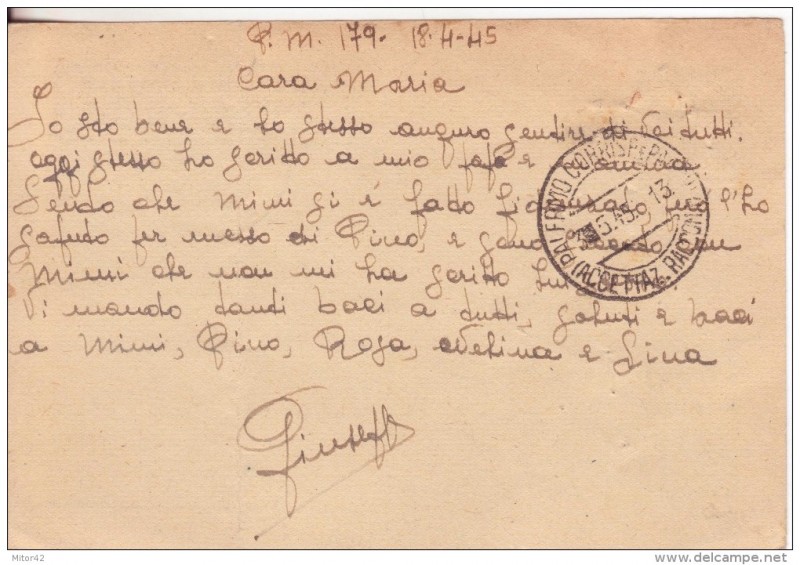 P.M. 179. 18-4-45
Cara Maria
Io sto bene e lo stesso auguro sentire di voi tutti.
oggi stesso ho scritto a mio papà e
Sendo che Mimi si è fatto l'ho
saputo per messo di Pino, e sono con
Mimi che non mi ha scritto
Vi mando tanti baci a tutti, saluti e baci
a Mimi, Pino, Rosa, e Lina
PALERMO CORRISP.
(ACCETTAZ.
Mitor42
delcampe.net